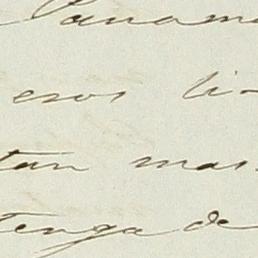 Panama
esos li-
tan mas
tenga de